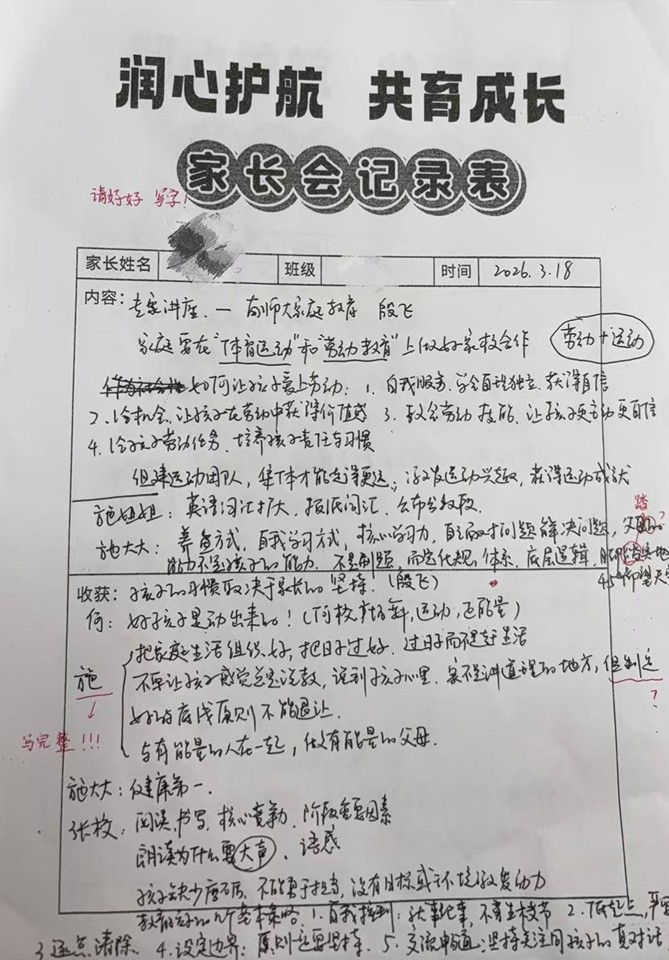 润心护航 共育成长
家长会记录表
请好好 写字!
家长姓名 班级 时间 2026.3.18
内容: 专家讲座. — 南师大家庭教育 段飞
家庭要在"体育运动"和"劳动教育"上做好家校合作 劳动+运动
如何让孩子爱上劳动: 1. 自我服务, 学会自理独立, 获得自信
2. 给机会, 让孩子在劳动中获得价值感 3. 教会劳动技能, 让孩子更主动更自信
4. 给孩子劳动任务, 培养孩子责任与习惯
组建运动团队, 集体才能走得更远; 激发运动兴趣, 获得运动成就
施姐姐: 英语词汇扩大, 报纸词汇,
踏?
施大大: 养育方式, 自我学习方式, 核心学习力, 自主面对问题解决问题,
能力不是孩子的能力. 不是刷题, 而定化规, 体系, 底层逻辑, 脚
仰望天空
收获: 孩子的习惯取决于家长的坚持. (段飞)
何: 好孩子是动出来的! (何校, 运动, 还能量)
把家庭生活组织好, 把日子过好, 过日子而不是好生活
施 不要让孩子感觉总是说教, 说到孩子心里. 家不是讲道理的地方, 但制定
?
好的底线原则不能退让.
写完整!!!
与有能量的人在一起, 做有能量的父母.
施大大: 健康第一.
张校: 阅读, 书写, 核心竞争力, 阶段重要因素
朗读为什么要大声, 语感
孩子缺少磨砺, 不能勇于担当, 没有目标或环境激发动力
教育好的几个基本策略. 1. 自我控制: 就事论事, 不旁生枝节 2. 低起点, 严要
3. 逐点清除. 4. 设定边界: 原则还要坚持. 5. 交流沟通: 坚持关注同孩子的真对话.